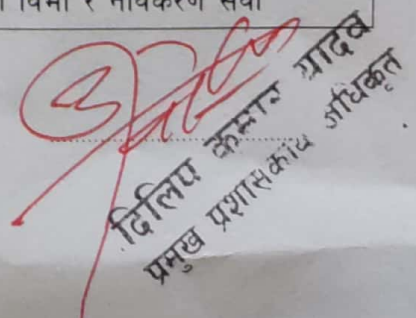 विमा र नविकरण सेवा
दिलिप कुमार यादव
प्रमुख प्रशासकीय अधिकृत